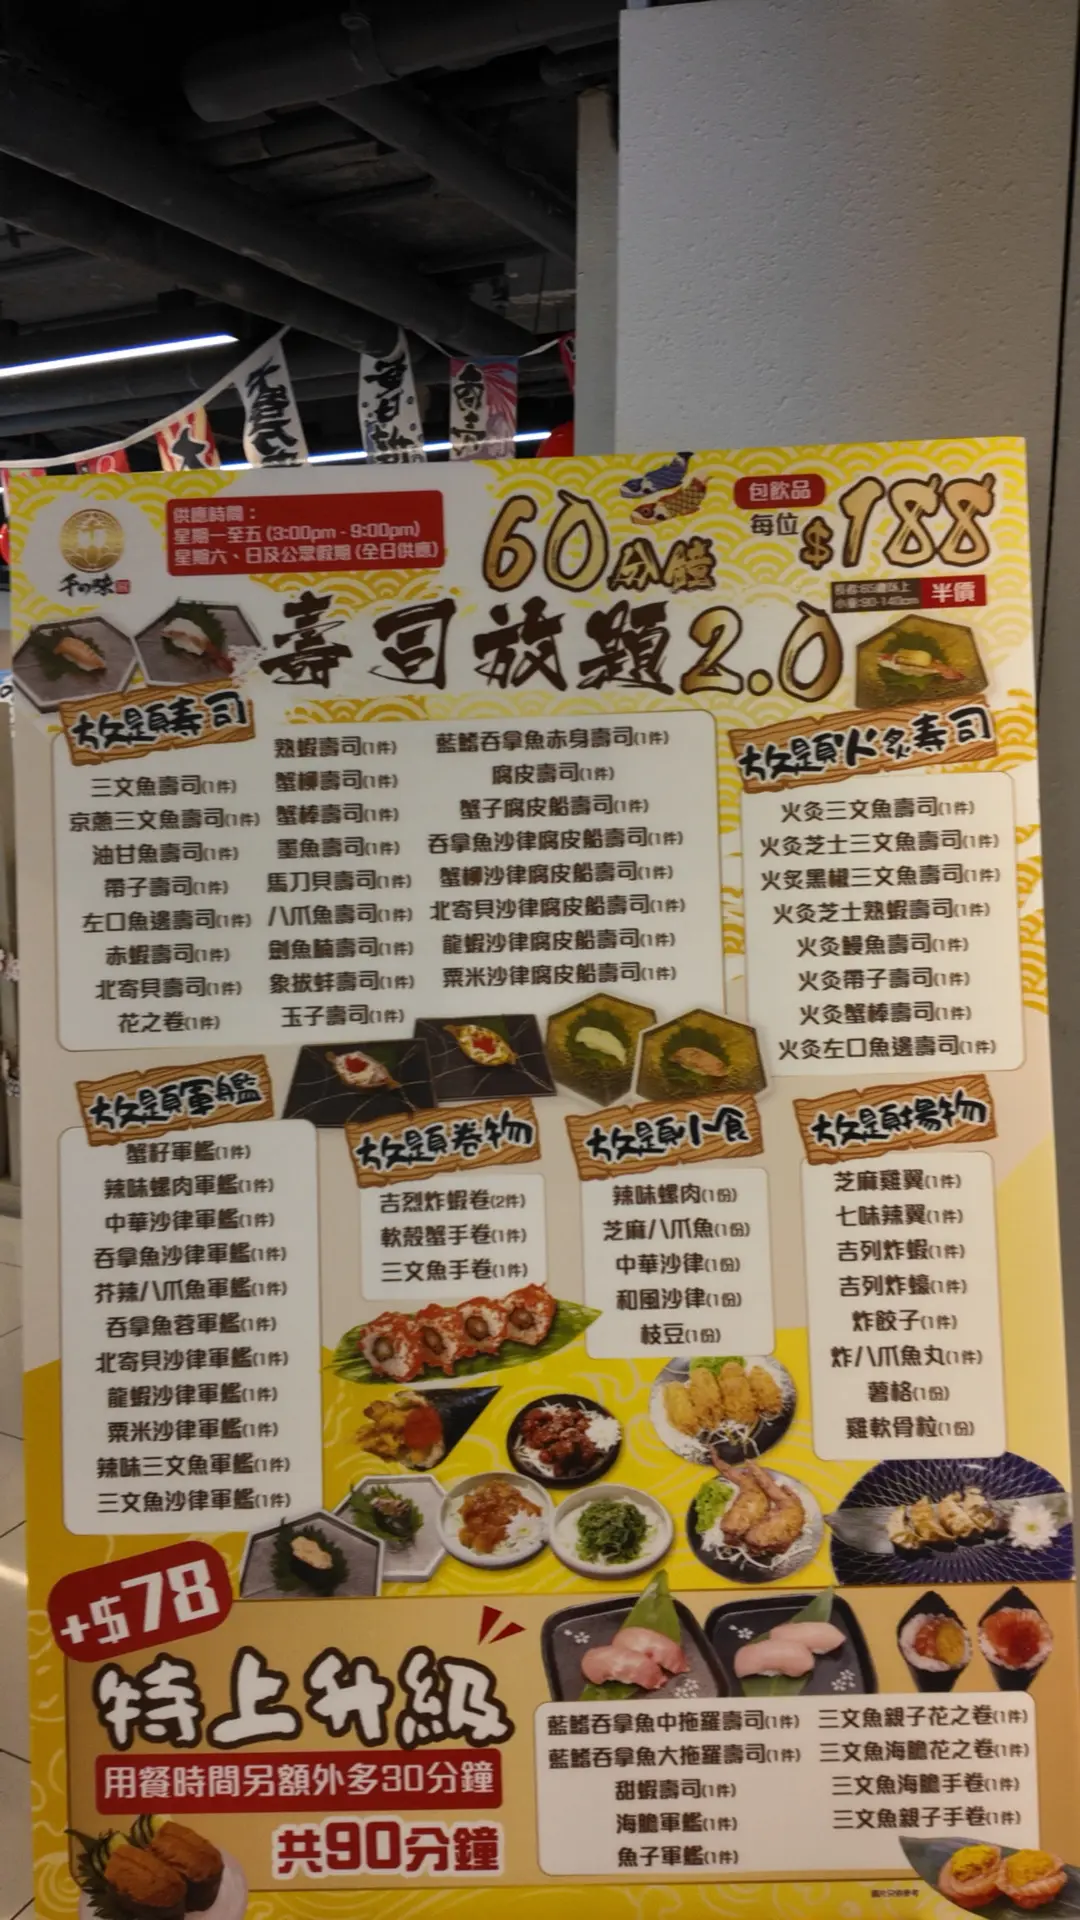 供應時間：
星期一至五 (3:00pm - 9:00pm)
星期六、日及公眾假期 (全日供應)
千の味
60分鐘
包飲品
每位 $188
長者:65歲以上
小童:90-140cm
半價
壽司放題2.0
放題壽司
三文魚壽司(1件)
京蔥三文魚壽司(1件)
油甘魚壽司(1件)
帶子壽司(1件)
左口魚邊壽司(1件)
赤蝦壽司(1件)
北寄貝壽司(1件)
花之卷(1件)
熟蝦壽司(1件)
蟹柳壽司(1件)
蟹棒壽司(1件)
墨魚壽司(1件)
馬刀貝壽司(1件)
八爪魚壽司(1件)
劍魚腩壽司(1件)
象拔蚌壽司(1件)
玉子壽司(1件)
藍鰭吞拿魚赤身壽司(1件)
腐皮壽司(1件)
蟹子腐皮船壽司(1件)
吞拿魚沙律腐皮船壽司(1件)
蟹柳沙律腐皮船壽司(1件)
北寄貝沙律腐皮船壽司(1件)
龍蝦沙律腐皮船壽司(1件)
粟米沙律腐皮船壽司(1件)
放題火炙壽司
火灸三文魚壽司(1件)
火灸芝士三文魚壽司(1件)
火炙黑椒三文魚壽司(1件)
火灸芝士熟蝦壽司(1件)
火灸鰻魚壽司(1件)
火灸帶子壽司(1件)
火灸蟹棒壽司(1件)
火灸左口魚邊壽司(1件)
放題軍艦
蟹籽軍艦(1件)
辣味螺肉軍艦(1件)
中華沙律軍艦(1件)
吞拿魚沙律軍艦(1件)
芥辣八爪魚軍艦(1件)
吞拿魚蓉軍艦(1件)
北寄貝沙律軍艦(1件)
龍蝦沙律軍艦(1件)
粟米沙律軍艦(1件)
辣味三文魚軍艦(1件)
三文魚沙律軍艦(1件)
放題卷物
吉烈炸蝦卷(2件)
軟殼蟹手卷(1件)
三文魚手卷(1件)
放題小食
辣味螺肉(1份)
芝麻八爪魚(1份)
中華沙律(1份)
和風沙律(1份)
枝豆(1份)
放題揚物
芝麻雞翼(1件)
七味辣翼(1件)
吉列炸蝦(1件)
吉列炸蠔(1件)
炸餃子(1件)
炸八爪魚丸(1件)
薯格(1份)
雞軟骨粒(1份)
+$78
特上升級
用餐時間另額外多30分鐘
共90分鐘
藍鰭吞拿魚中拖羅壽司(1件)
藍鰭吞拿魚大拖羅壽司(1件)
甜蝦壽司(1件)
海膽軍艦(1件)
魚子軍艦(1件)
三文魚親子花之卷(1件)
三文魚海膽花之卷(1件)
三文魚海膽手卷(1件)
三文魚親子手卷(1件)
圖片只供參考